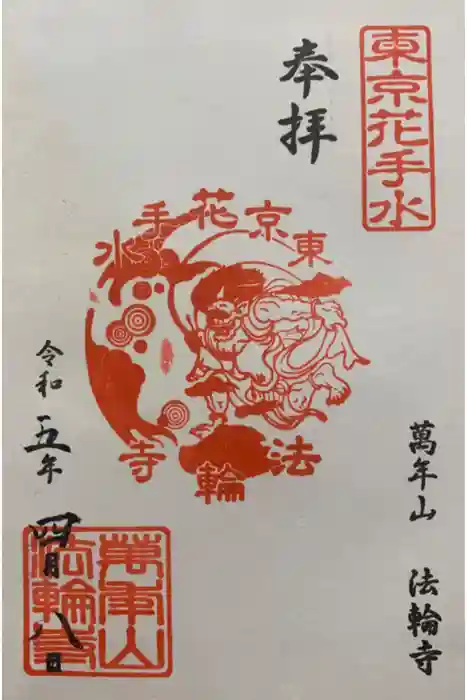 東京花手水
奉拝
東京花手水
法輪寺
萬年山 法輪寺
令和五年
四月八日
萬年山
法輪寺